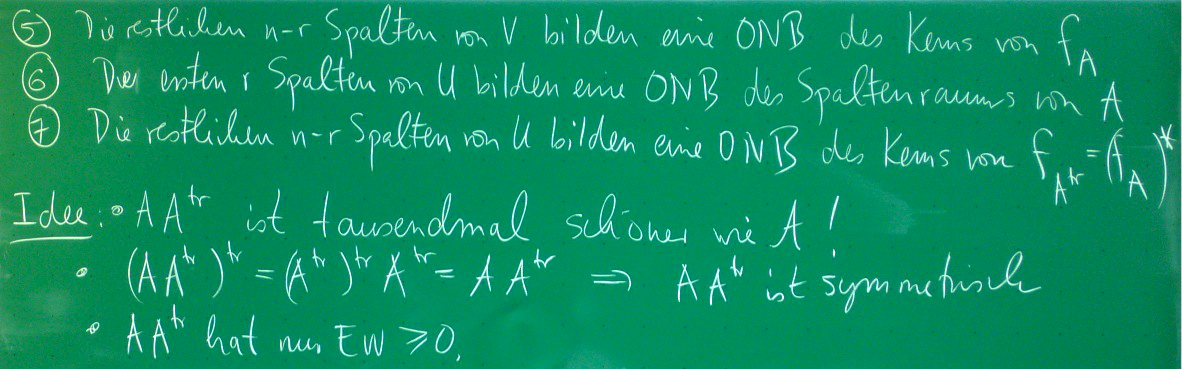 ⑤ Die restlichen n-r Spalten von V bilden eine ONB des Kerns von f_A
⑥ Die ersten r Spalten von U bilden eine ONB des Spaltenraums von A
⑦ Die restlichen n-r Spalten von U bilden eine ONB des Kerns von f_{A^{tr}} = (f_A)^*
Idee: • AA^{tr} ist tausendmal schöner wie A!
• (AA^{tr})^{tr} = (A^{tr})^{tr} A^{tr} = A A^{tr} ⇒ AA^{tr} ist symmetrisch
• AA^{tr} hat nur EW ⩾0,